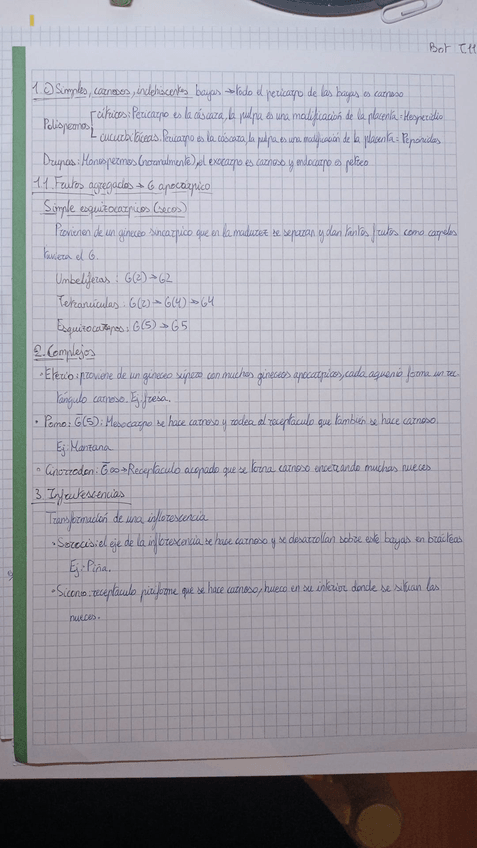 Bot T.11
1.c) Simples, carnosos, indehiscentes bayas → todo el pericarpo de las bayas es carnoso
Polispermos [ cítricos: Pericarpo es la cáscara, la pulpa es una modificación de la placenta = Hesperidio
cucurbitáceas. Pericarpo es la cáscara, la pulpa es una modificación de la placenta = Pepónides
Drupas: Monospermos (normalmente), el exocarpo es carnoso y endocarpo es pétreo
1.1 Frutos agregados → G apocárpico
Simple esquizocarpios (secos)
Provienen de un gineceo sincarpico que en la madurez se separan y dan tantos frutos como carpelos
tuviera el G.
Umbelíferas: G(2) → G2
Tetranúculas: G(2) → G(4) → G4
Esquizocarpos: G(5) → G5
2. Complejos
· Eterio: proviene de un gineceo súpero con muchos gineceos apocárpicos, cada aquenio forma un rec
tángulo carnoso. Ej: fresa.
· Pomo: G(5): Mesocarpo se hace carnoso y rodea al receptáculo que también se hace carnoso.
Ej: Manzana
· Cinorrodon: G∞ → Receptáculo acopado que se torna carnoso encerrando muchas nueces
3. Infrutescencias
Transformación de una inflorescencia
· Sorosis: el eje de la inflorescencia se hace carnoso y se desarrollan sobre este bayas en brácteas
Ej: Piña.
· Sicono. receptáculo piriforme que se hace carnoso, hueco en su interior donde se sitúan las
nueces.